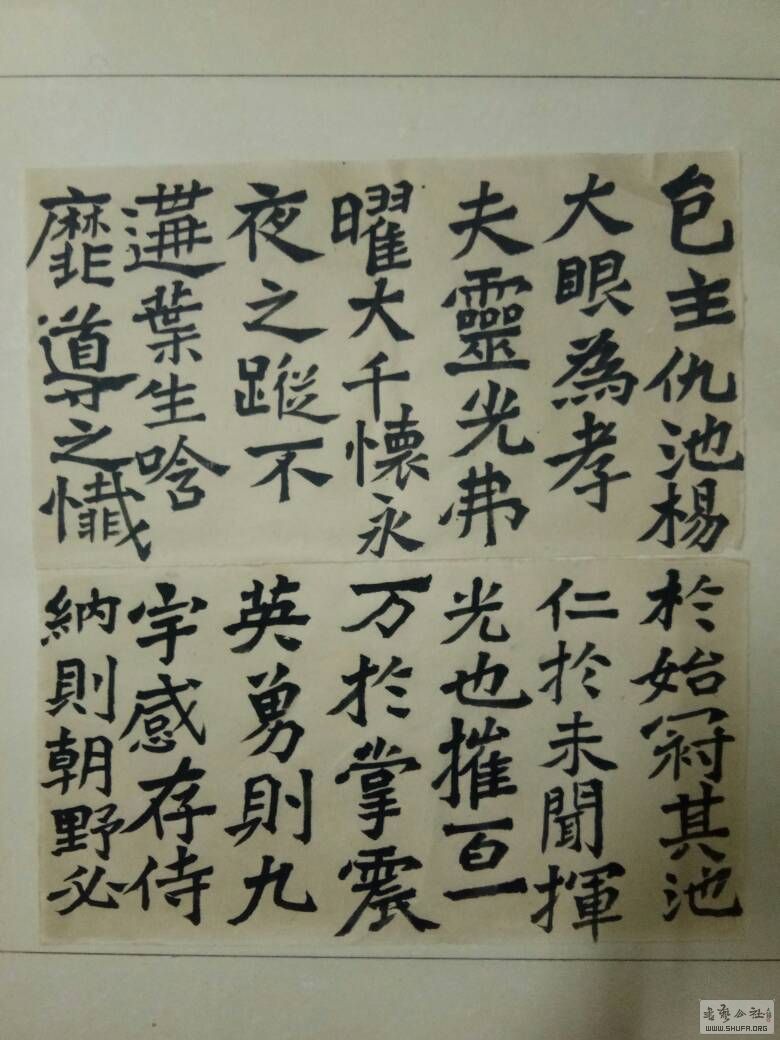 邑主仇池楊
大眼為孝
夫靈光弗
曜大千懷永
夜之蹤不
遘葉生唅
靡導之懺
於始冠其池
仁於未聞揮
光也摧百一
万於掌震
英勇則九
宇感存侍
納則朝野必
書藝公社
WWW.SHUFA.ORG